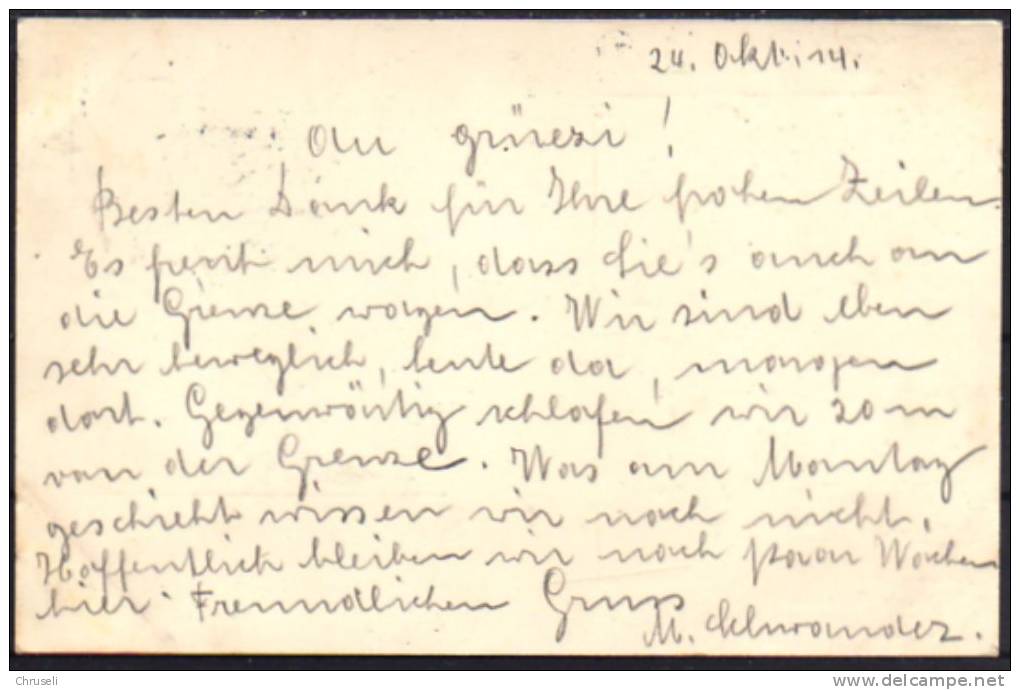 24. Okt. 14.
Au grüezi!
Besten Dank für Ihre frohen Zeilen.
Es freut mich, dass Sie's auch an
die Grenze wagen. Wir sind eben
sehr beweglich, heute da, morgen
dort. Gegenwärtig schlafen wir 20 m
von der Grenze. Was am Montag
geschieht wissen wir noch nicht.
Hoffentlich bleiben wir noch paar Wochen
hier. Freundlichen Gruss
M. Schwander.
Chruseli
www.delcampe.net